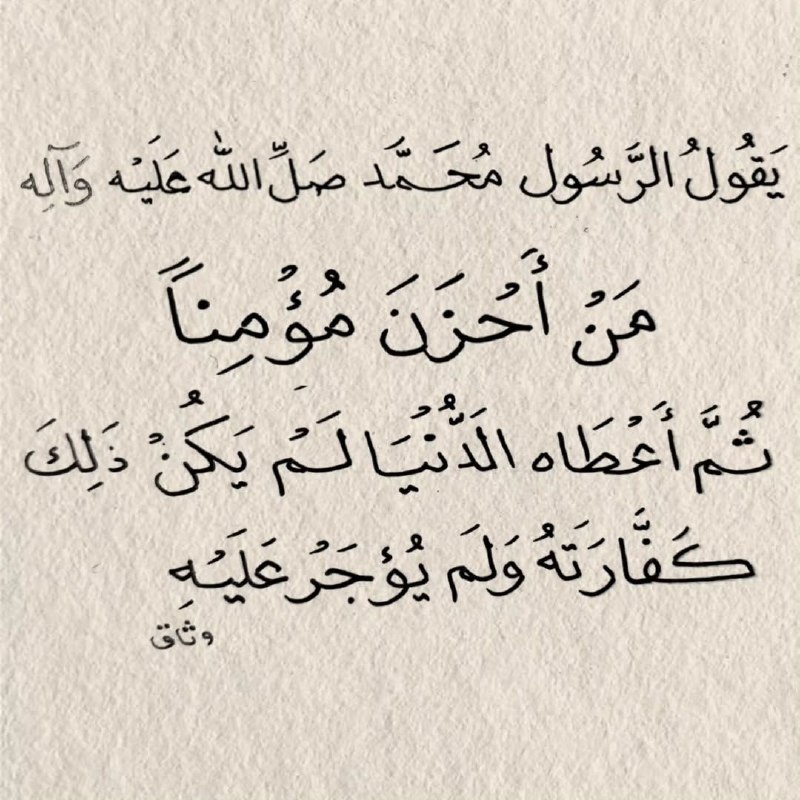 يَقُولُ الرَّسُول مُحَمَّد صَلِّ اللّٰه عَلَيْه وَآلِه
مَنْ أَحْزَنَ مُؤْمِناً
ثُمَّ أَعْطَاه الدُّنْيَا لَمْ يَكُنْ ذَلِكَ
كَفَّارَتَهُ وَلَم يُؤْجَرْ عَلَيْهِ
وثاق